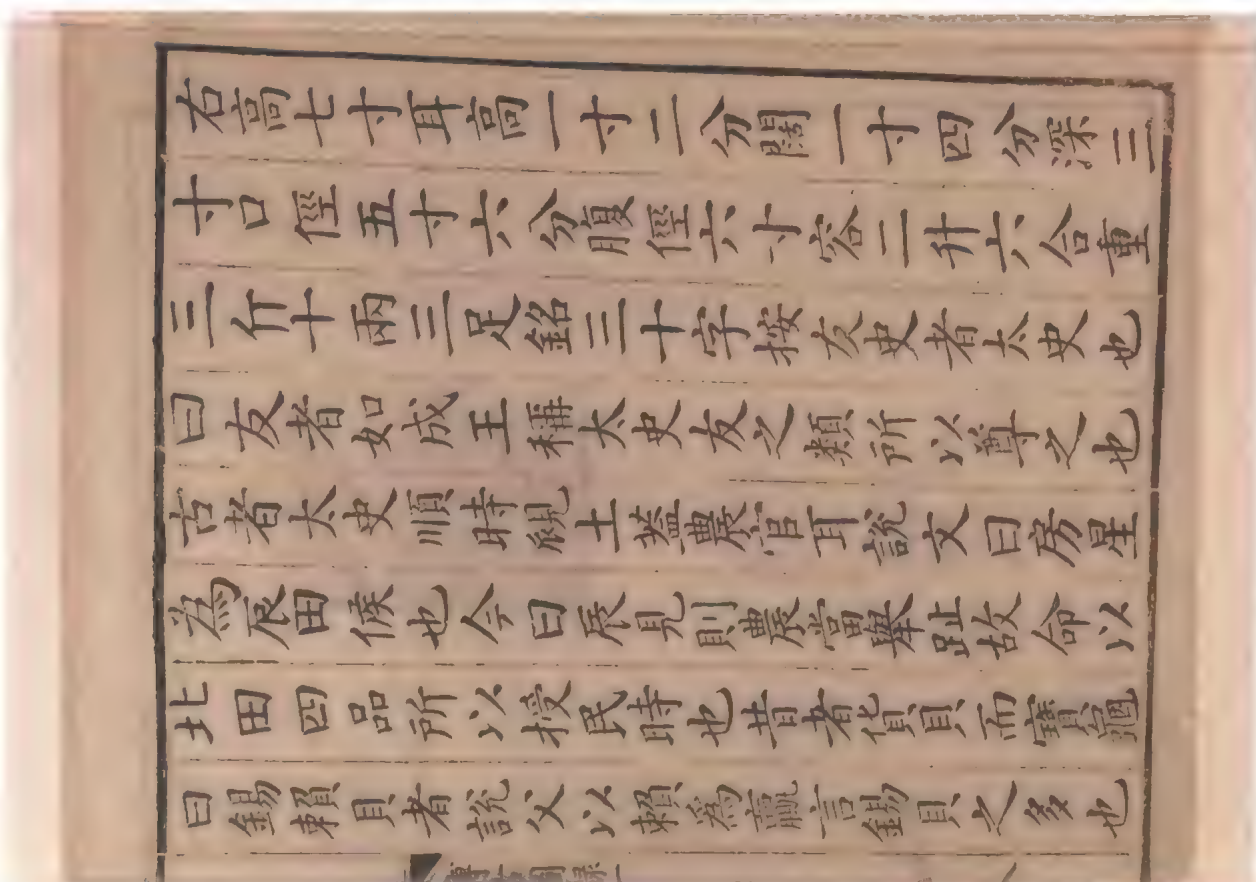 右高七寸耳高一寸二分闊一寸四分深三
寸口徑五寸六分腹徑六寸容二升六合重
三斤十兩三足銘三十字按友史者太史也
曰友者如成王稱太史友之類所以尊之也
古者太史順時覛土蓋農官耳說文曰房星
為辰田候也今曰辰見則農當舉趾故命以
北田四品所以授民時也昔者貨貝而寶龜
曰錫賴貝者說父以賴為贏言錫貝之多也